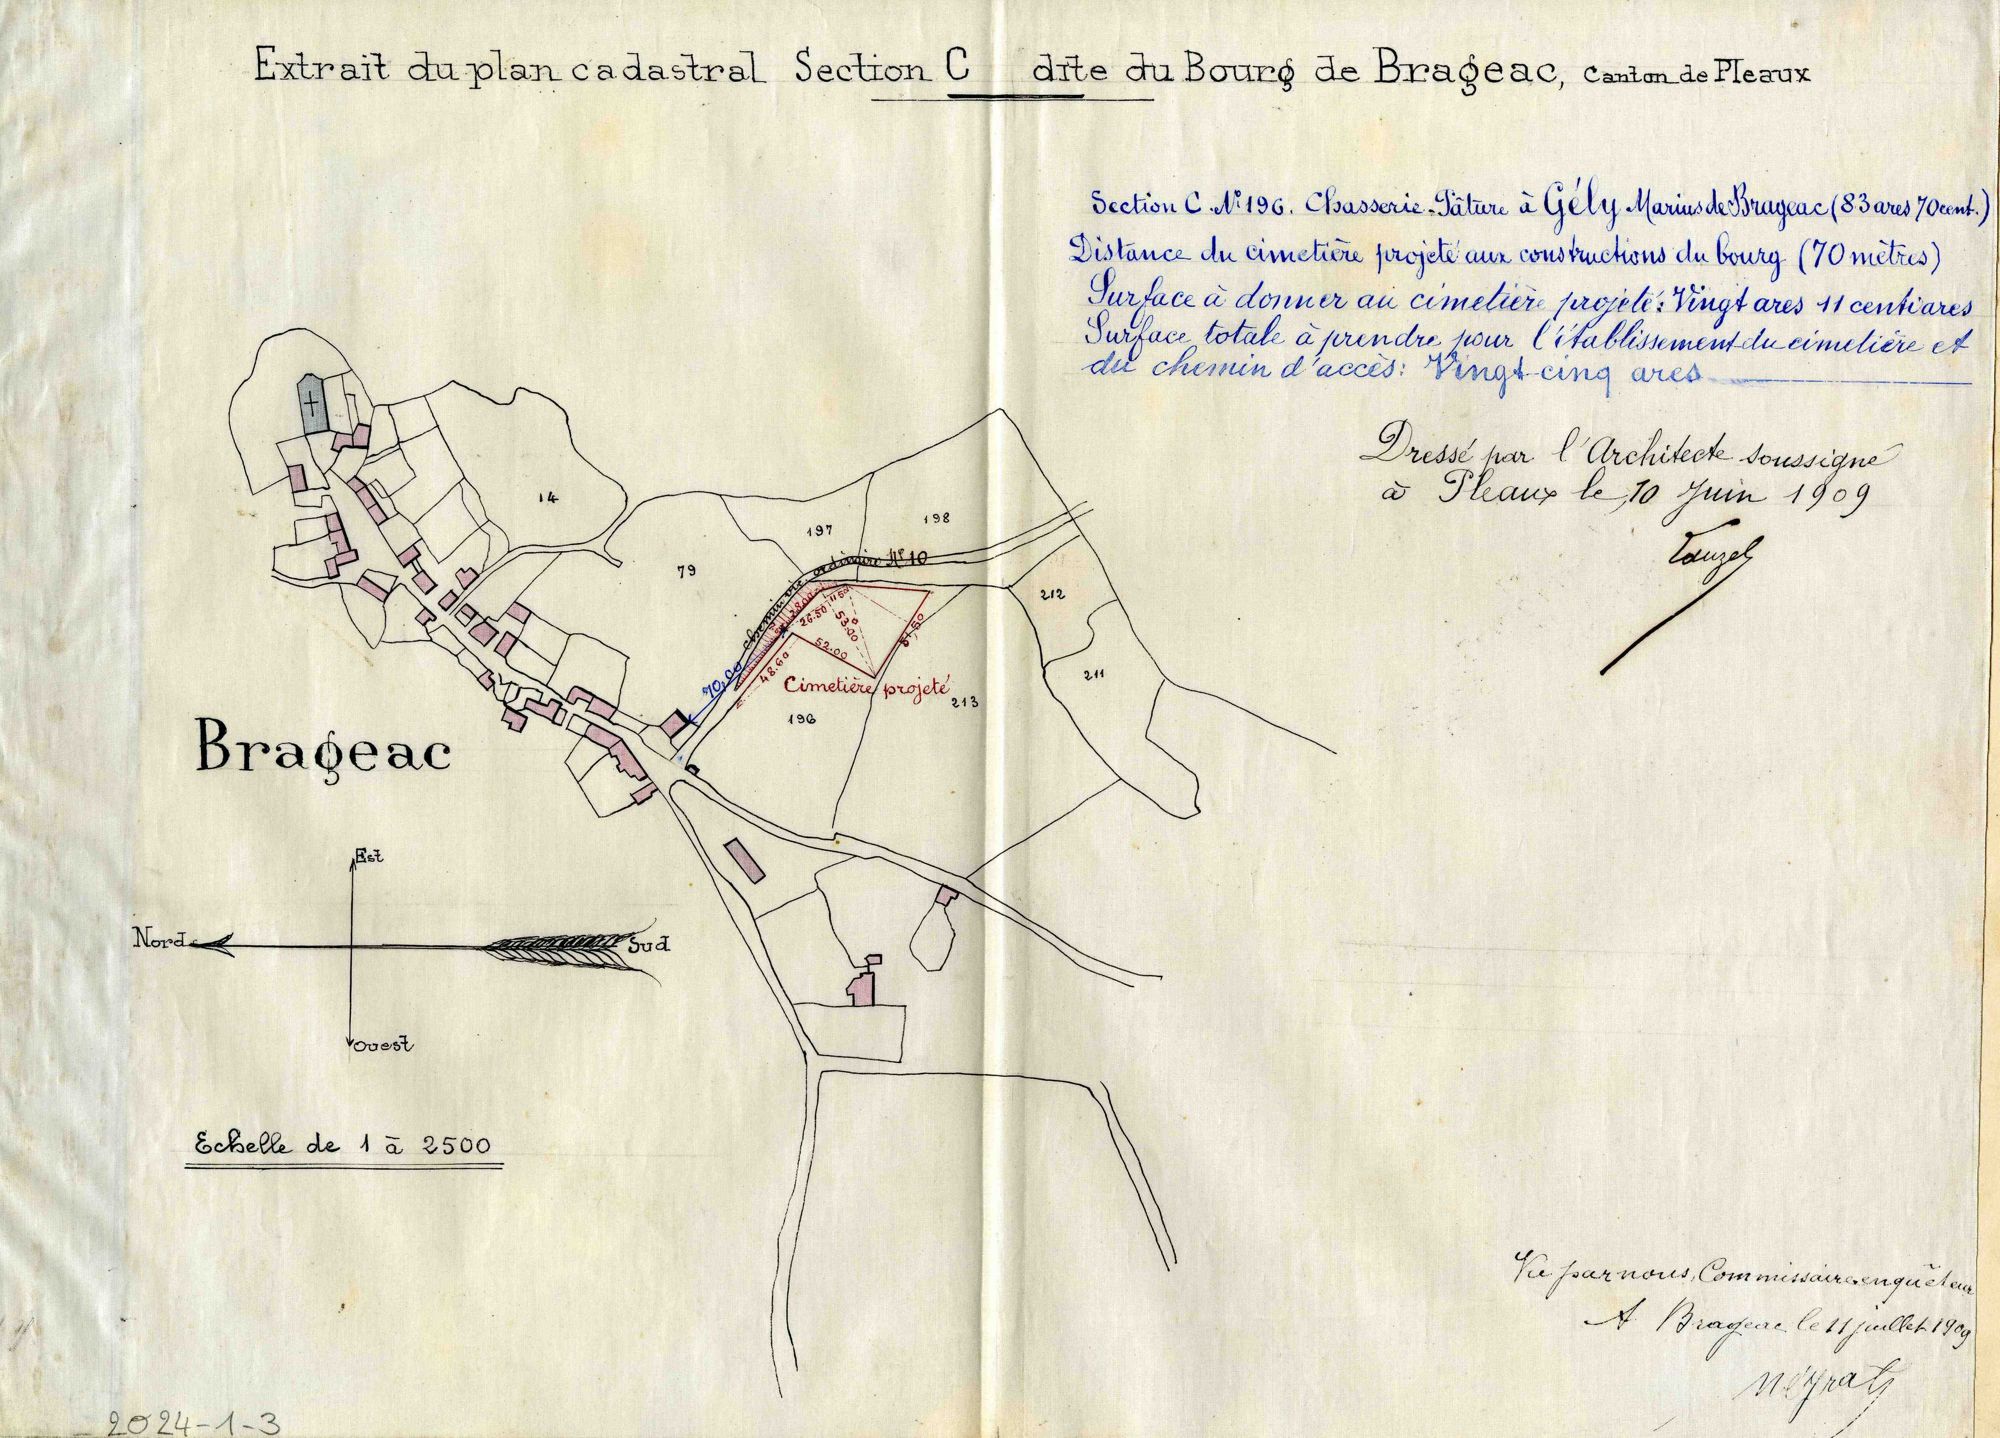 Extrait du plan cadastral Section C dite du Bourg de Brageac, Canton de Pleaux
Section C. Nº 196. Chasserie. Pâture à Gély Marius de Brageac (83 ares 70 cent.)
Distance du cimetière projeté aux constructions du bourg (70 mètres)
Surface à donner au cimetière projeté: Vingt ares 11 centiares
Surface totale à prendre pour l'établissement du cimetière et
du chemin d'accès: Vingt-cinq ares
Dressé par l'Architecte soussigné
à Pleaux le 10 Juin 1909
14
197
198
79
Chemin vic. ordinaire Nº 10
212
211
70,00
28.00
11.50
26.50
53.00
52.00
51,50
48.60
Cimetière projeté
196
213
Brageac
Est
Nord
Sud
Ouest
Echelle de 1 à 2500
Vu par nous, Commissaire enquêteur
A Brageac le 11 juillet 1909
2024-1-3